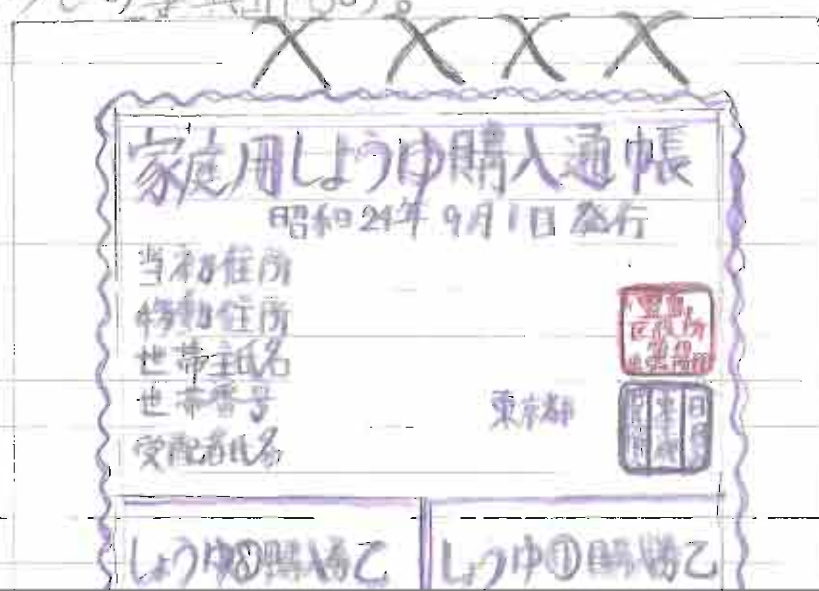 X X X X
家庭用しょうゆ購入通帳
昭和24年9月1日 発行
当初住所
移動住所
世帯主氏名
世帯番号 東京都
受配者氏名
しょうゆ 購入券乙 しょうゆ①購入券乙